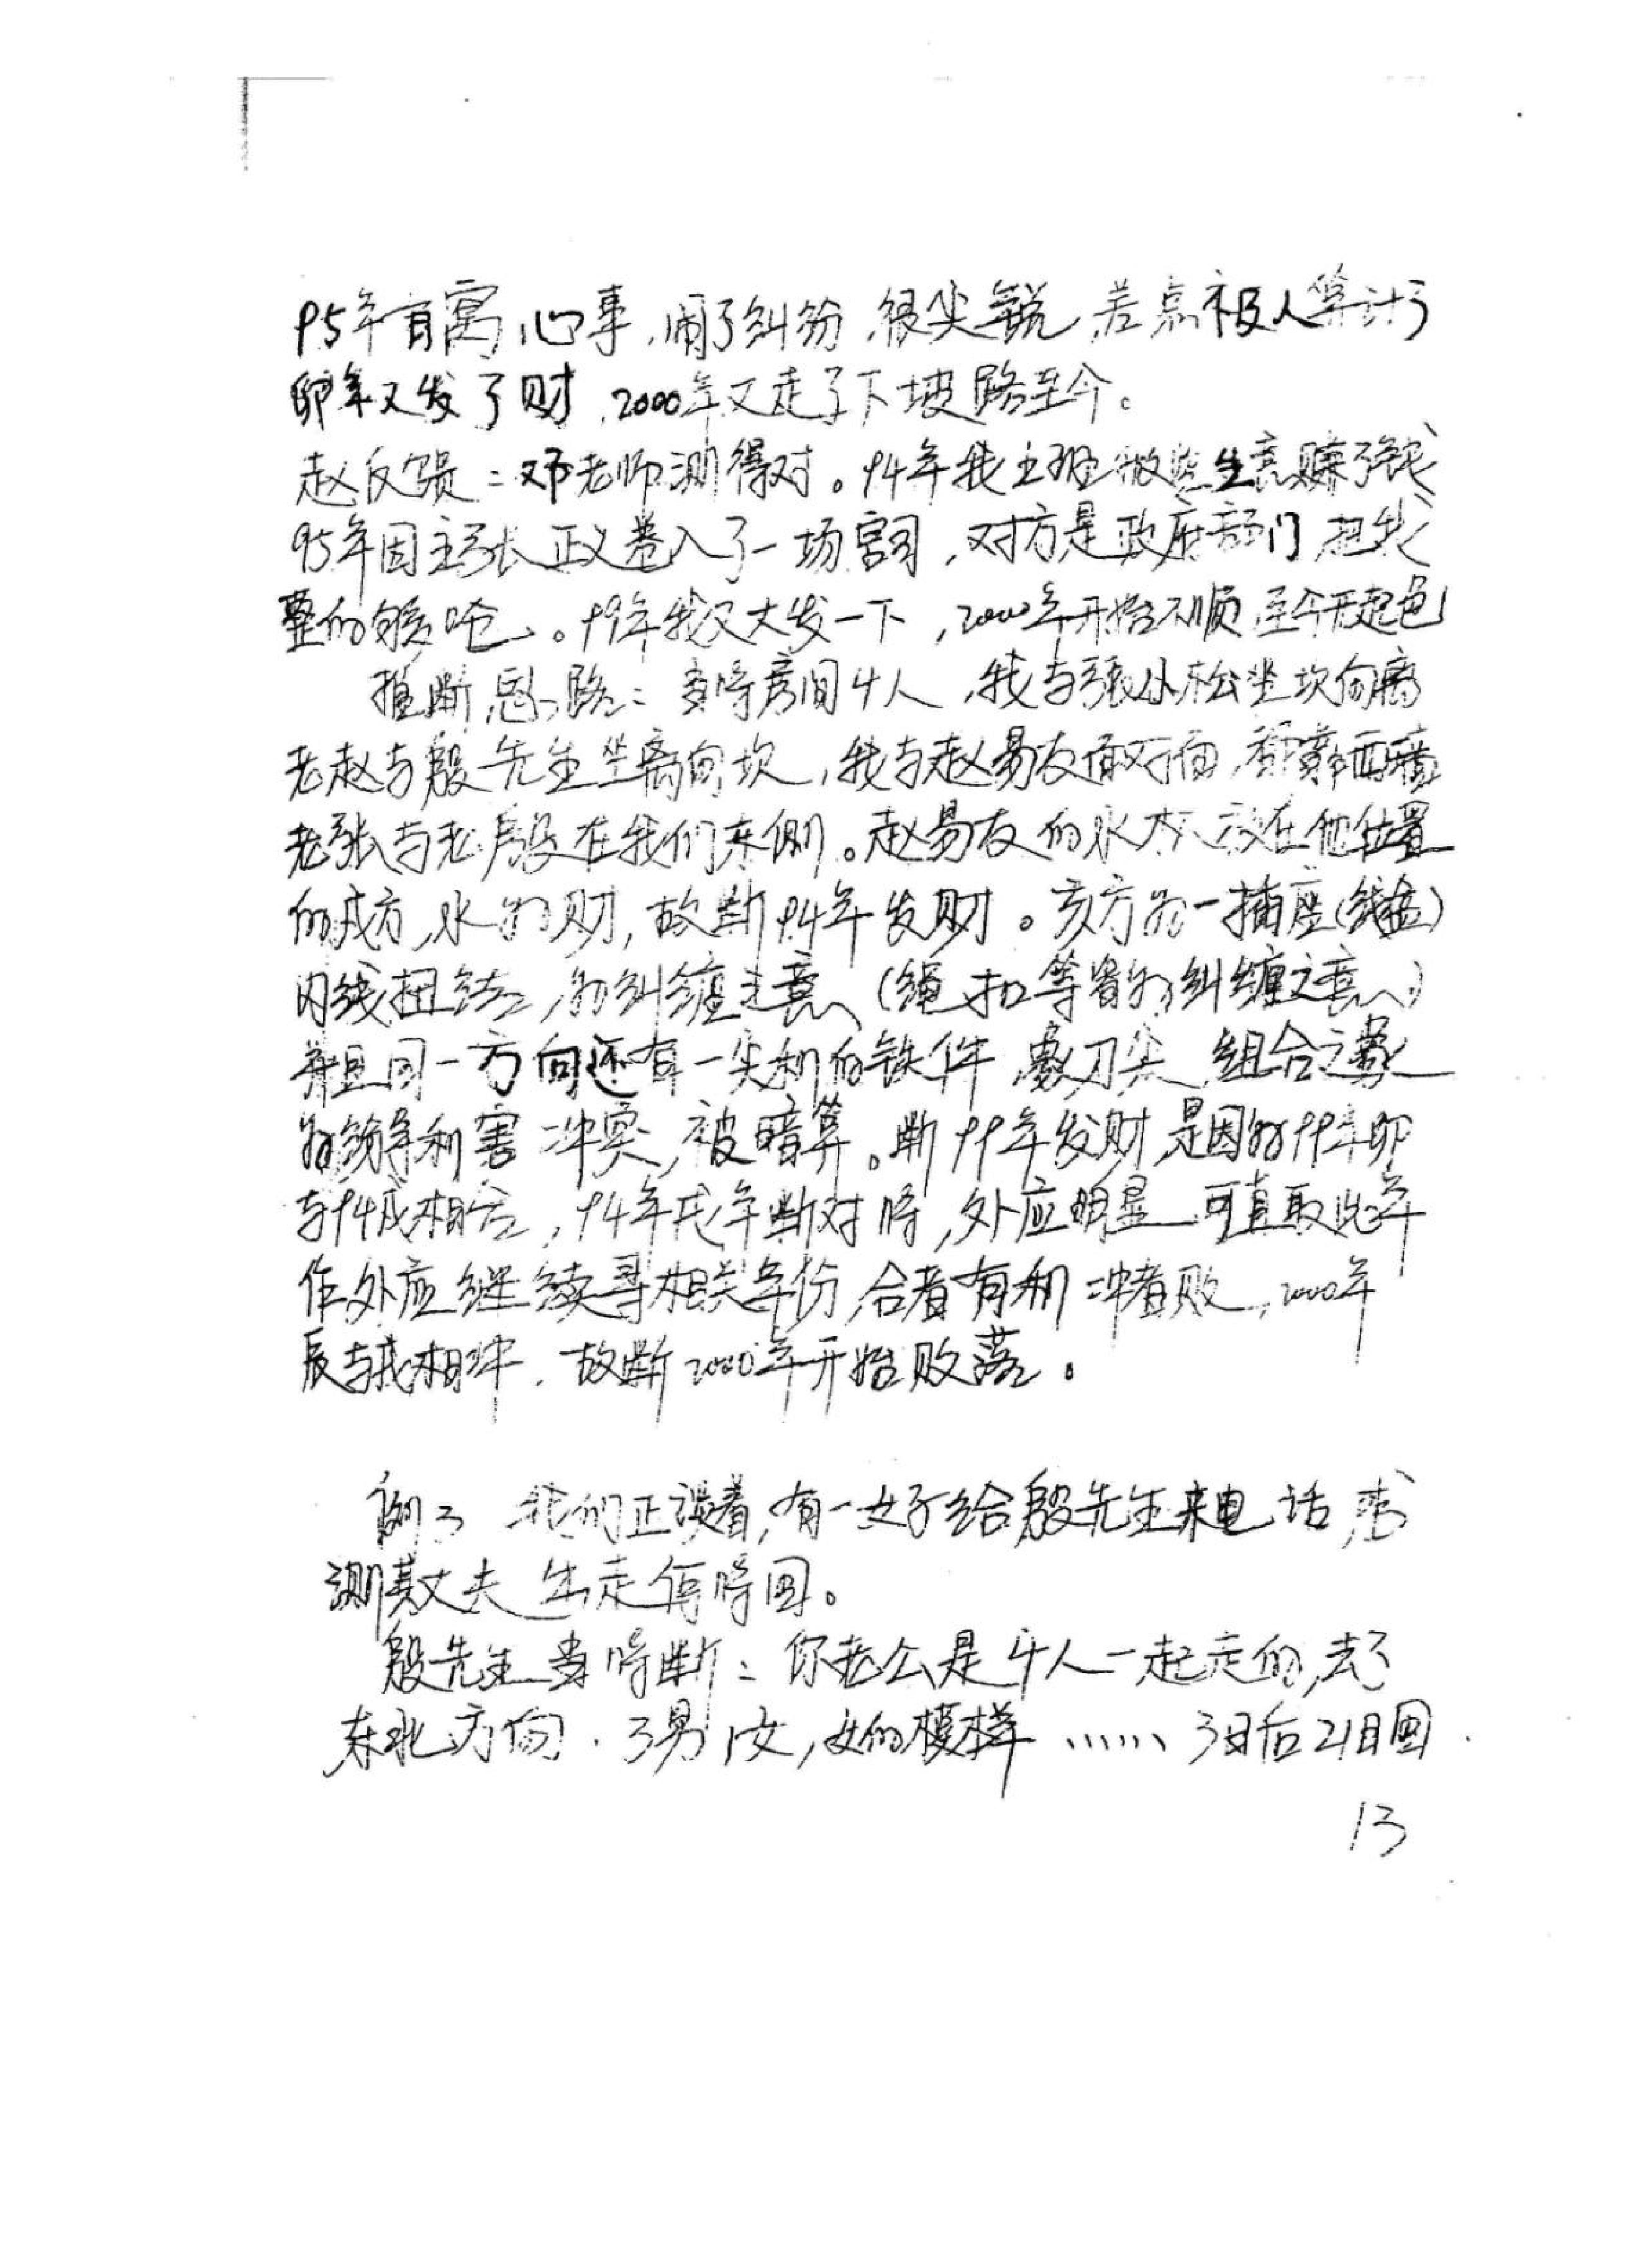 95年有窝心事,闹了纠纷,很尖锐,差点被人算计了
卯年又发了财,2000年又走了下坡路至今。
赵反馈:邓老师测得对。94年我上班做些生意赚了钱
95年因主张正义卷入了一场官司,对方是政府部门,把我
整的够呛。99年我又大发一下,2000年开始不顺,至今无起色
推断思路:当时房间4人,我与张小松坐坎向离
老赵与殷先生坐离向坎,我与赵易友面对面,都靠西墙
老张与老殷在我们东侧。赵易友的水杯放在他位置
的戌方,水为财,故断94年发财。亥方为一插座(线盒)
内线扭结,为纠缠之意(绳、扣等皆为纠缠之意)
并且同一方向还有一尖利的铁件,象刀尖,组合之象
为纷争利害冲突,被暗算。断99年发财,是因为99年卯
与94戌相合,94年戌年断对时,外应明显,可直取此年
作外应继续寻相关年份,合者有利,冲者败,2000年
辰与戌相冲,故断2000年开始败落。
例3 我们正谈着,有一女子给殷先生来电话,求
测其丈夫出走何时回。
殷先生当时断:你老公是4人一起走的,去了
东北方向,3男1女,女的模样……3日后21日回
13